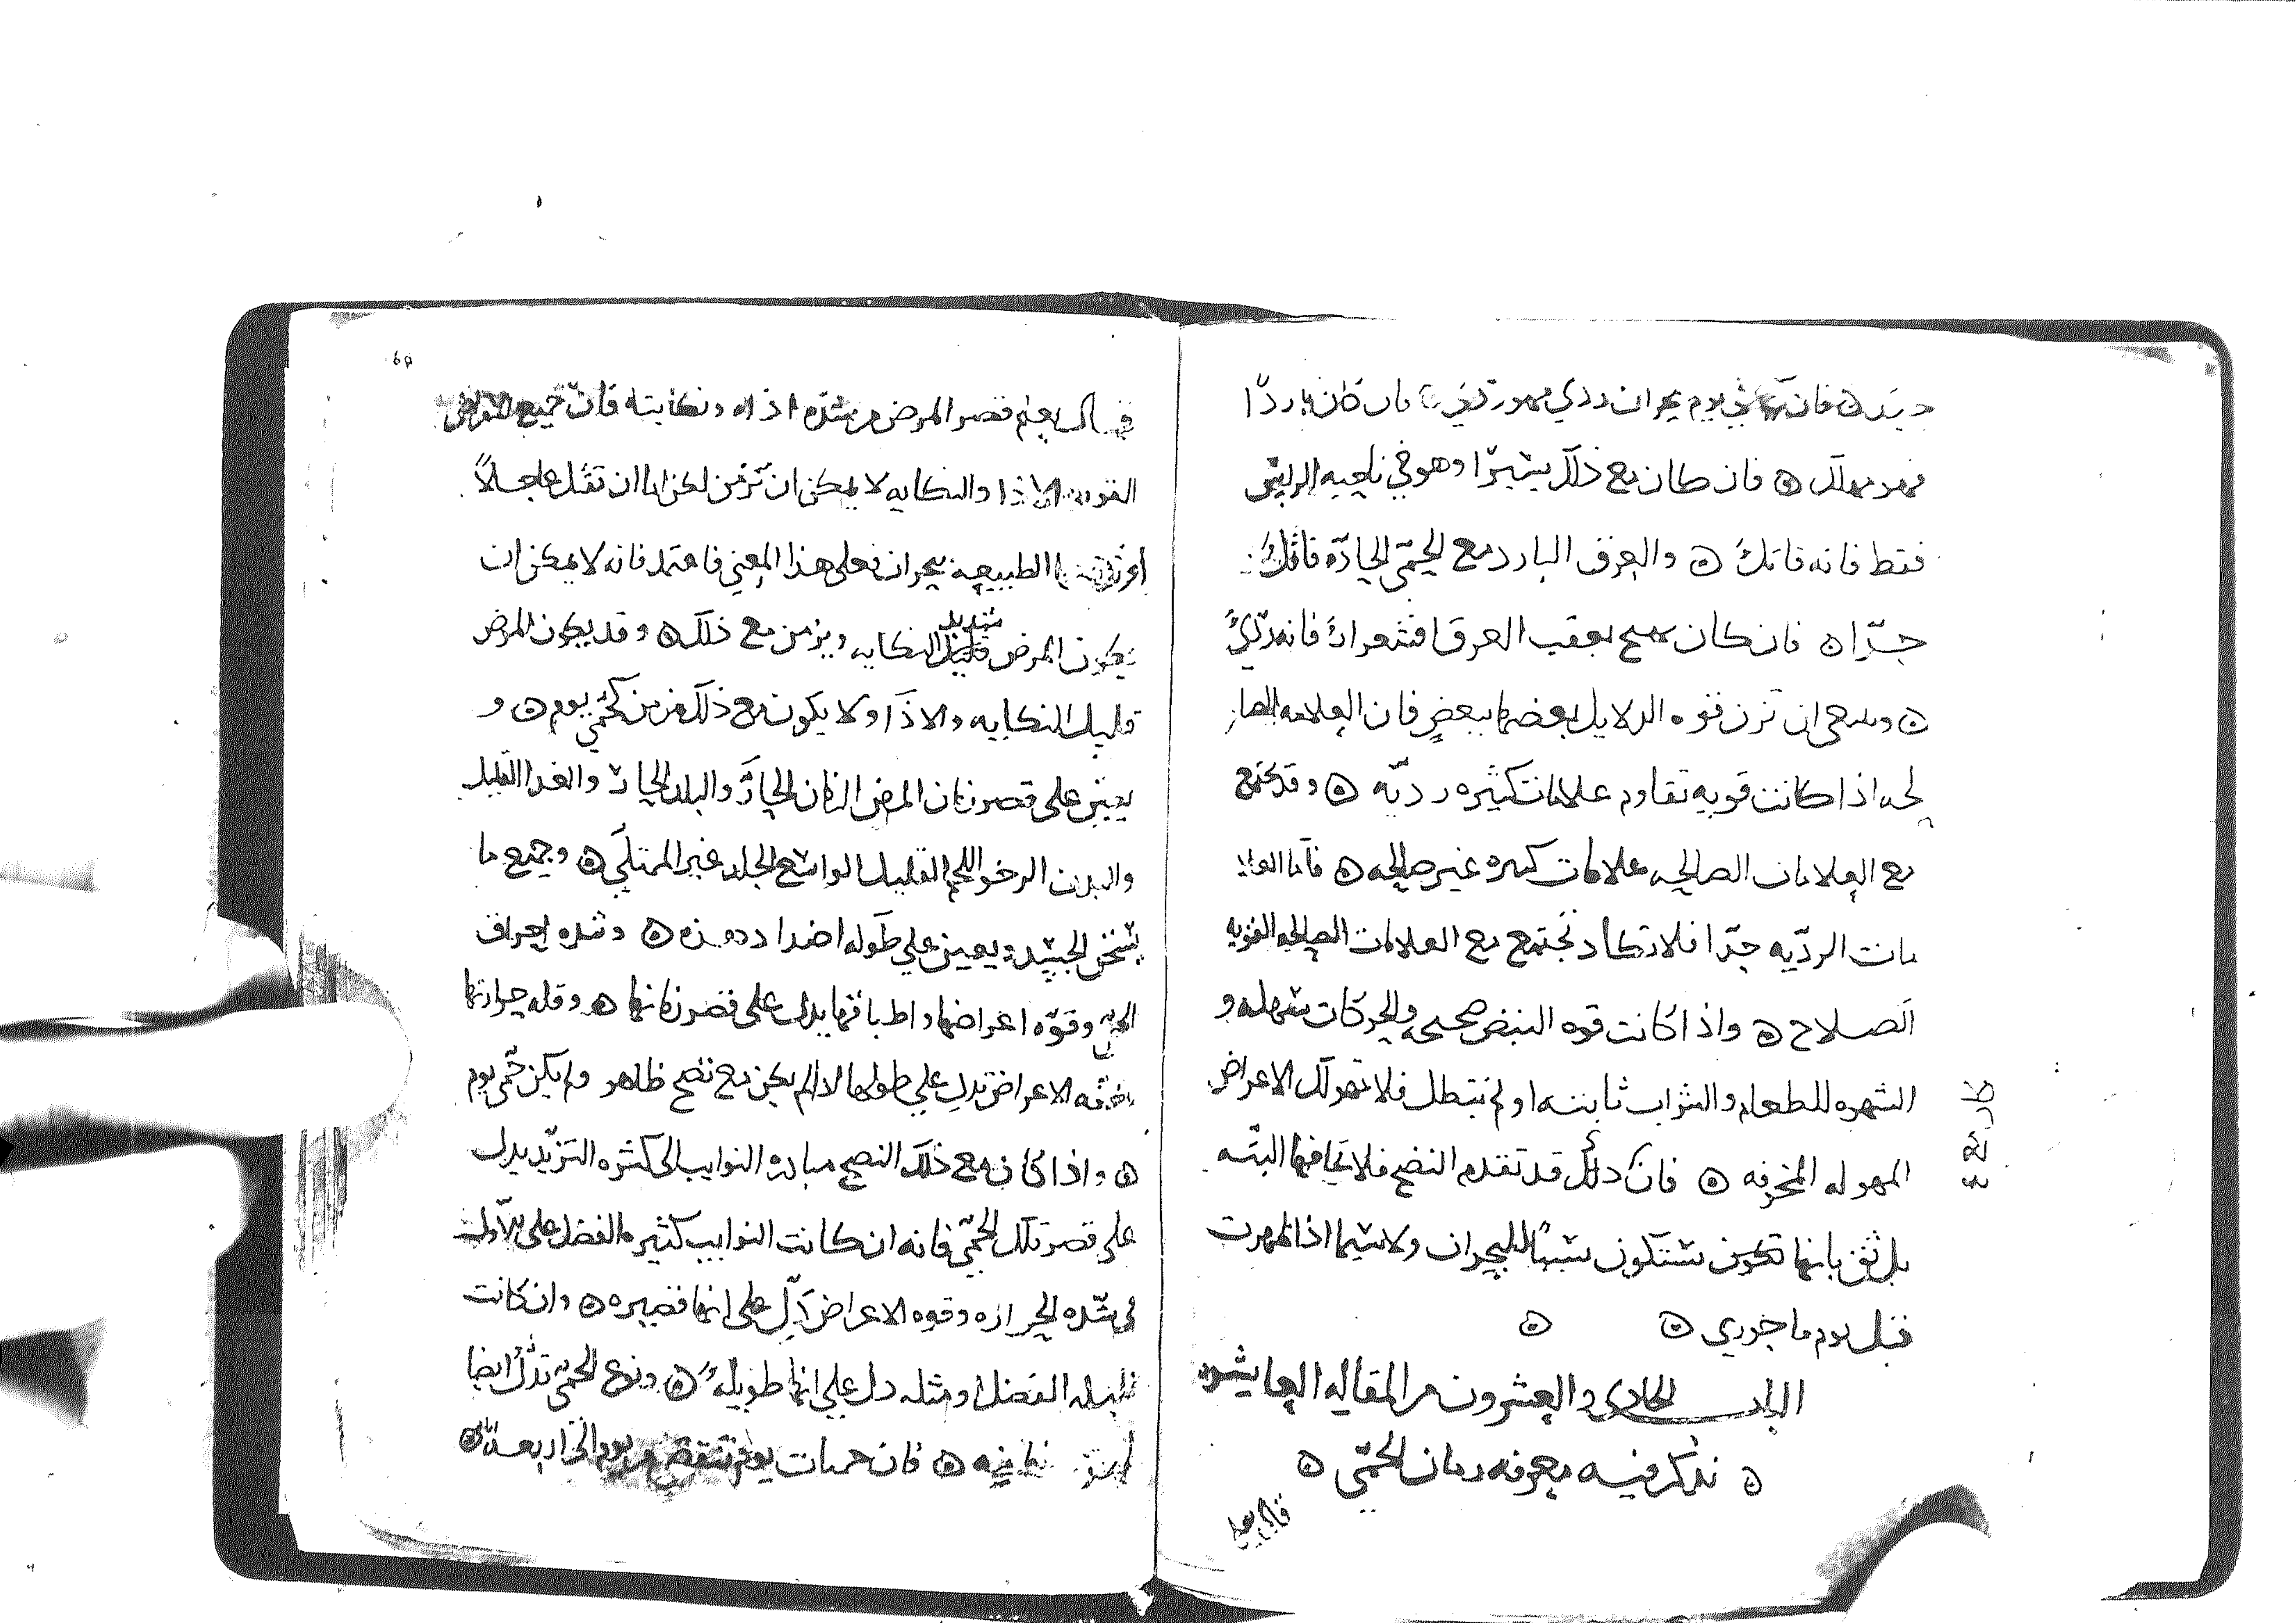 جيد ۞ فان في يوم بحران ردي فهو فان كان باردًا
فهو مهلك ۞ فان كان مع ذلك يسيرًا وهو في ناحيه الراس
فقط فانه قاتلٌ ۞ والعرق البارد مع الحمّي الحادّه قاتلٌ
جدّا ۞ فان كان يعقب العرق اقشعرارٌ فانه رديٌ
۞ وينبغي ان تزن قوه الدلايل بعضها ببعضٍ فان العلامه الصا
لحه اذا كانت قويه تقاوم علامات كثيره رديّه ۞ وقد تجتمع
مع العلامات الصالحه علامات كثيره غير صالحه ۞ فاما العلا
مات الرديّه جدّا فلا تكاد تجتمع مع العلامات الصالحه القويه
الصلاح ۞ واذا كانت قوه النبض صحيحه والحركات سهله و
الشهوه للطعام والشراب ثابته او لم تبطل فلا تهولك الاعراض
المهوله المخوفه ۞ فان كان ذلك قد تقدم النضج فلا تخافها البتّه
بل ثق بانها تكون ستكون سببًا للبحران ولا سيما اذا ظهرت
قبل يوم باحوري ۞ ۞
الباب الحادي والعشرون من المقاله العاشره
۞ نذكر فيه معرفه زمان الحمّي ۞
قال يعلم
قال يعلم قصر المرض من شدّه اذاه ونكايته فانّ جميع الامراض
القويه الاذا والنكايه لا يمكن ان تزمن لكن اما ان تقتل عاجلًا
او الطبيعه ببحران فعلي هذا المعني فاعتمد فانه لا يمكن ان
يكون المرض قليل شديد النكايه ويزمن مع ذلك ۞ وقد يكون المرض
قليل النكايه والاذا ولا يكون مع ذلك مزمن كحمّي يوم ۞ و
يعين علي قصر زمان المرض الزمان الحادّ والبلد الحادّ والغدا القليل
والبدن الرخو اللحم القليل الواسع الجلد غير الممتلي ۞ وجميع ما
يسخن الجسد ويعين علي طوله اضداد هذه ۞ وشده احراق
الحمّي وقوّه اعراضها واطباقها يدل علي قصر زمانها ۞ وقله حرارتها
وخفّه الاعراض تدل علي طولها اذا لم يكن مع نضج ظاهر ولم يكن حمّي يوم
۞ واذا كان مع ذلك النضج مبادره النوايب الي كثره التزيّد يدل
علي قصر تلك الحمّي فانه ان كانت النوايب كثيره الفضل علي الاولي
في شدّه الحراره وقوه الاعراض دلّ علي انها قصيره ۞ وان كانت
قليله الفضل او مثله دل علي انها طويله ۞ ونوع الحمّي تدلّ ايضا
۞ فان حميات يوم تنقضي من يوم الي اربعه